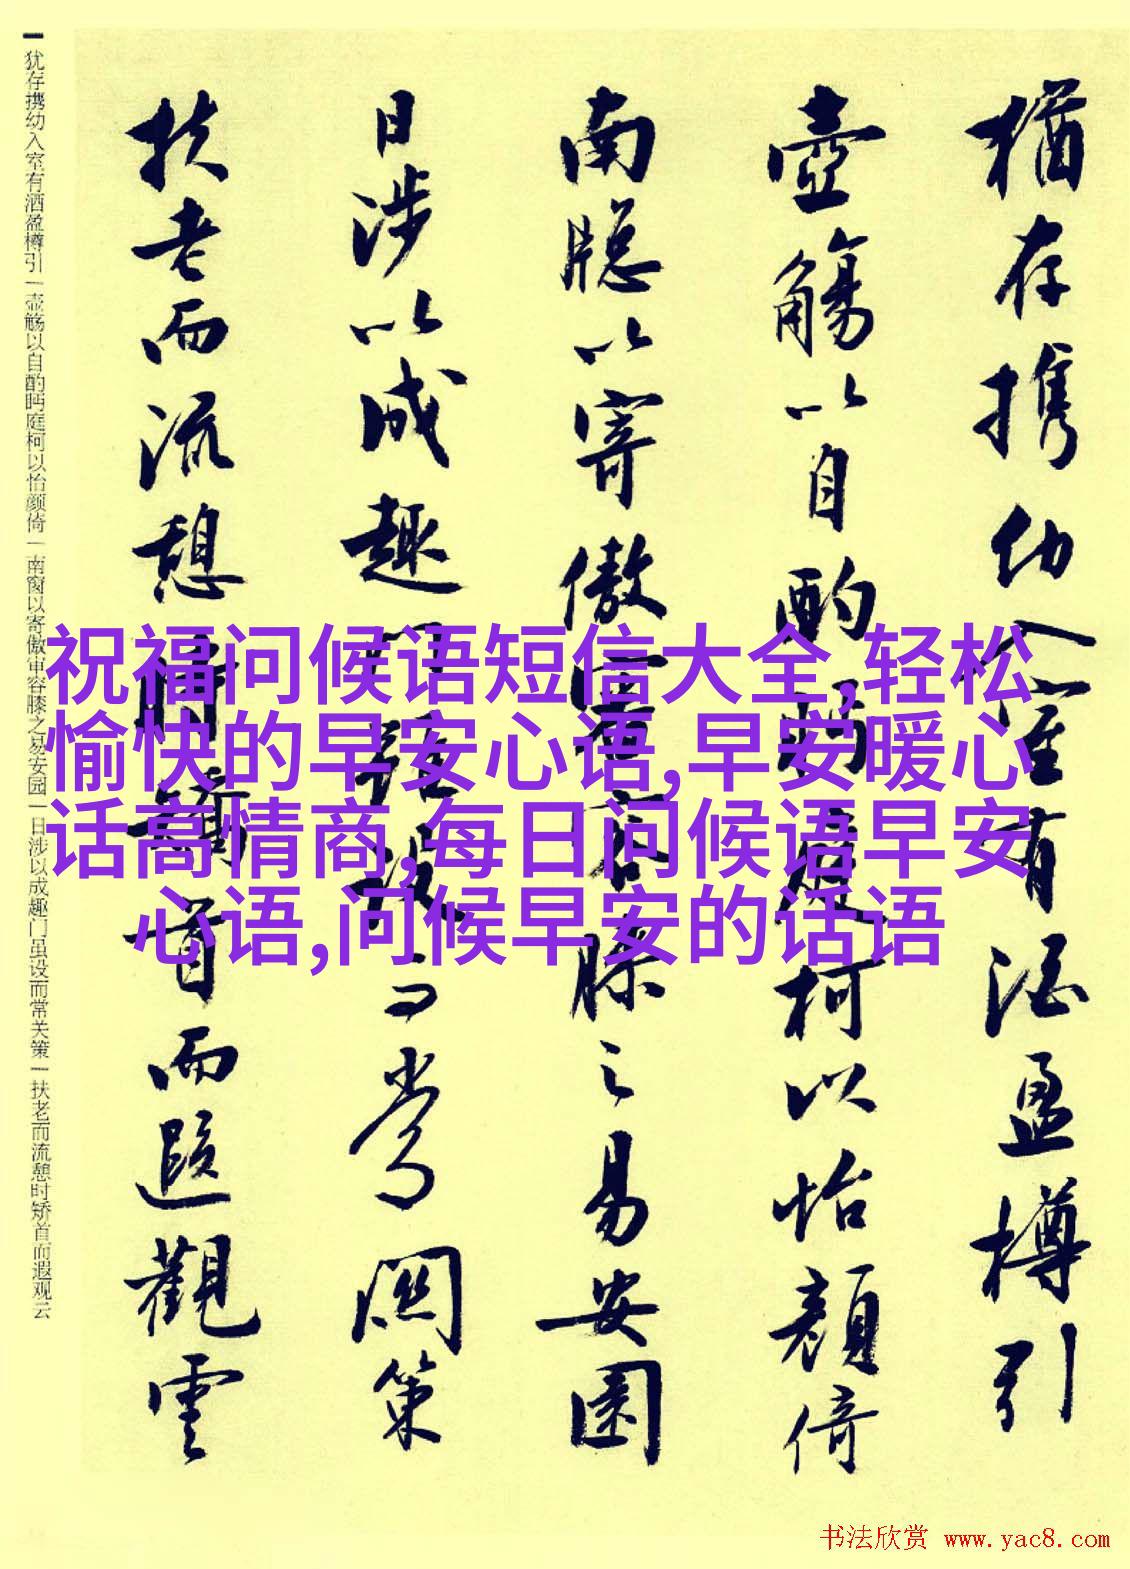 祝福问候语短信大全,轻松
愉快的早安心语,早安暖心
话高情商,每日问候语早安
心语,问候早安的话语
猶存携幼入室有酒盈樽引
壺觴以自酌眄庭柯以怡顔倚
南牕以寄傲審容膝之易安園
日涉以成趣門雖設而常関策
扶老而流憩時矯首而遐觀雲
犹存携幼入室有洒盈樽引|壶觞以自酌眄庭柯以怡颜倚|南窗以寄傲审容膝之易安园|日涉以成趣门虽设而常关策|扶老而流憩时矫首而遐观云
书法欣赏 www.yac8.com